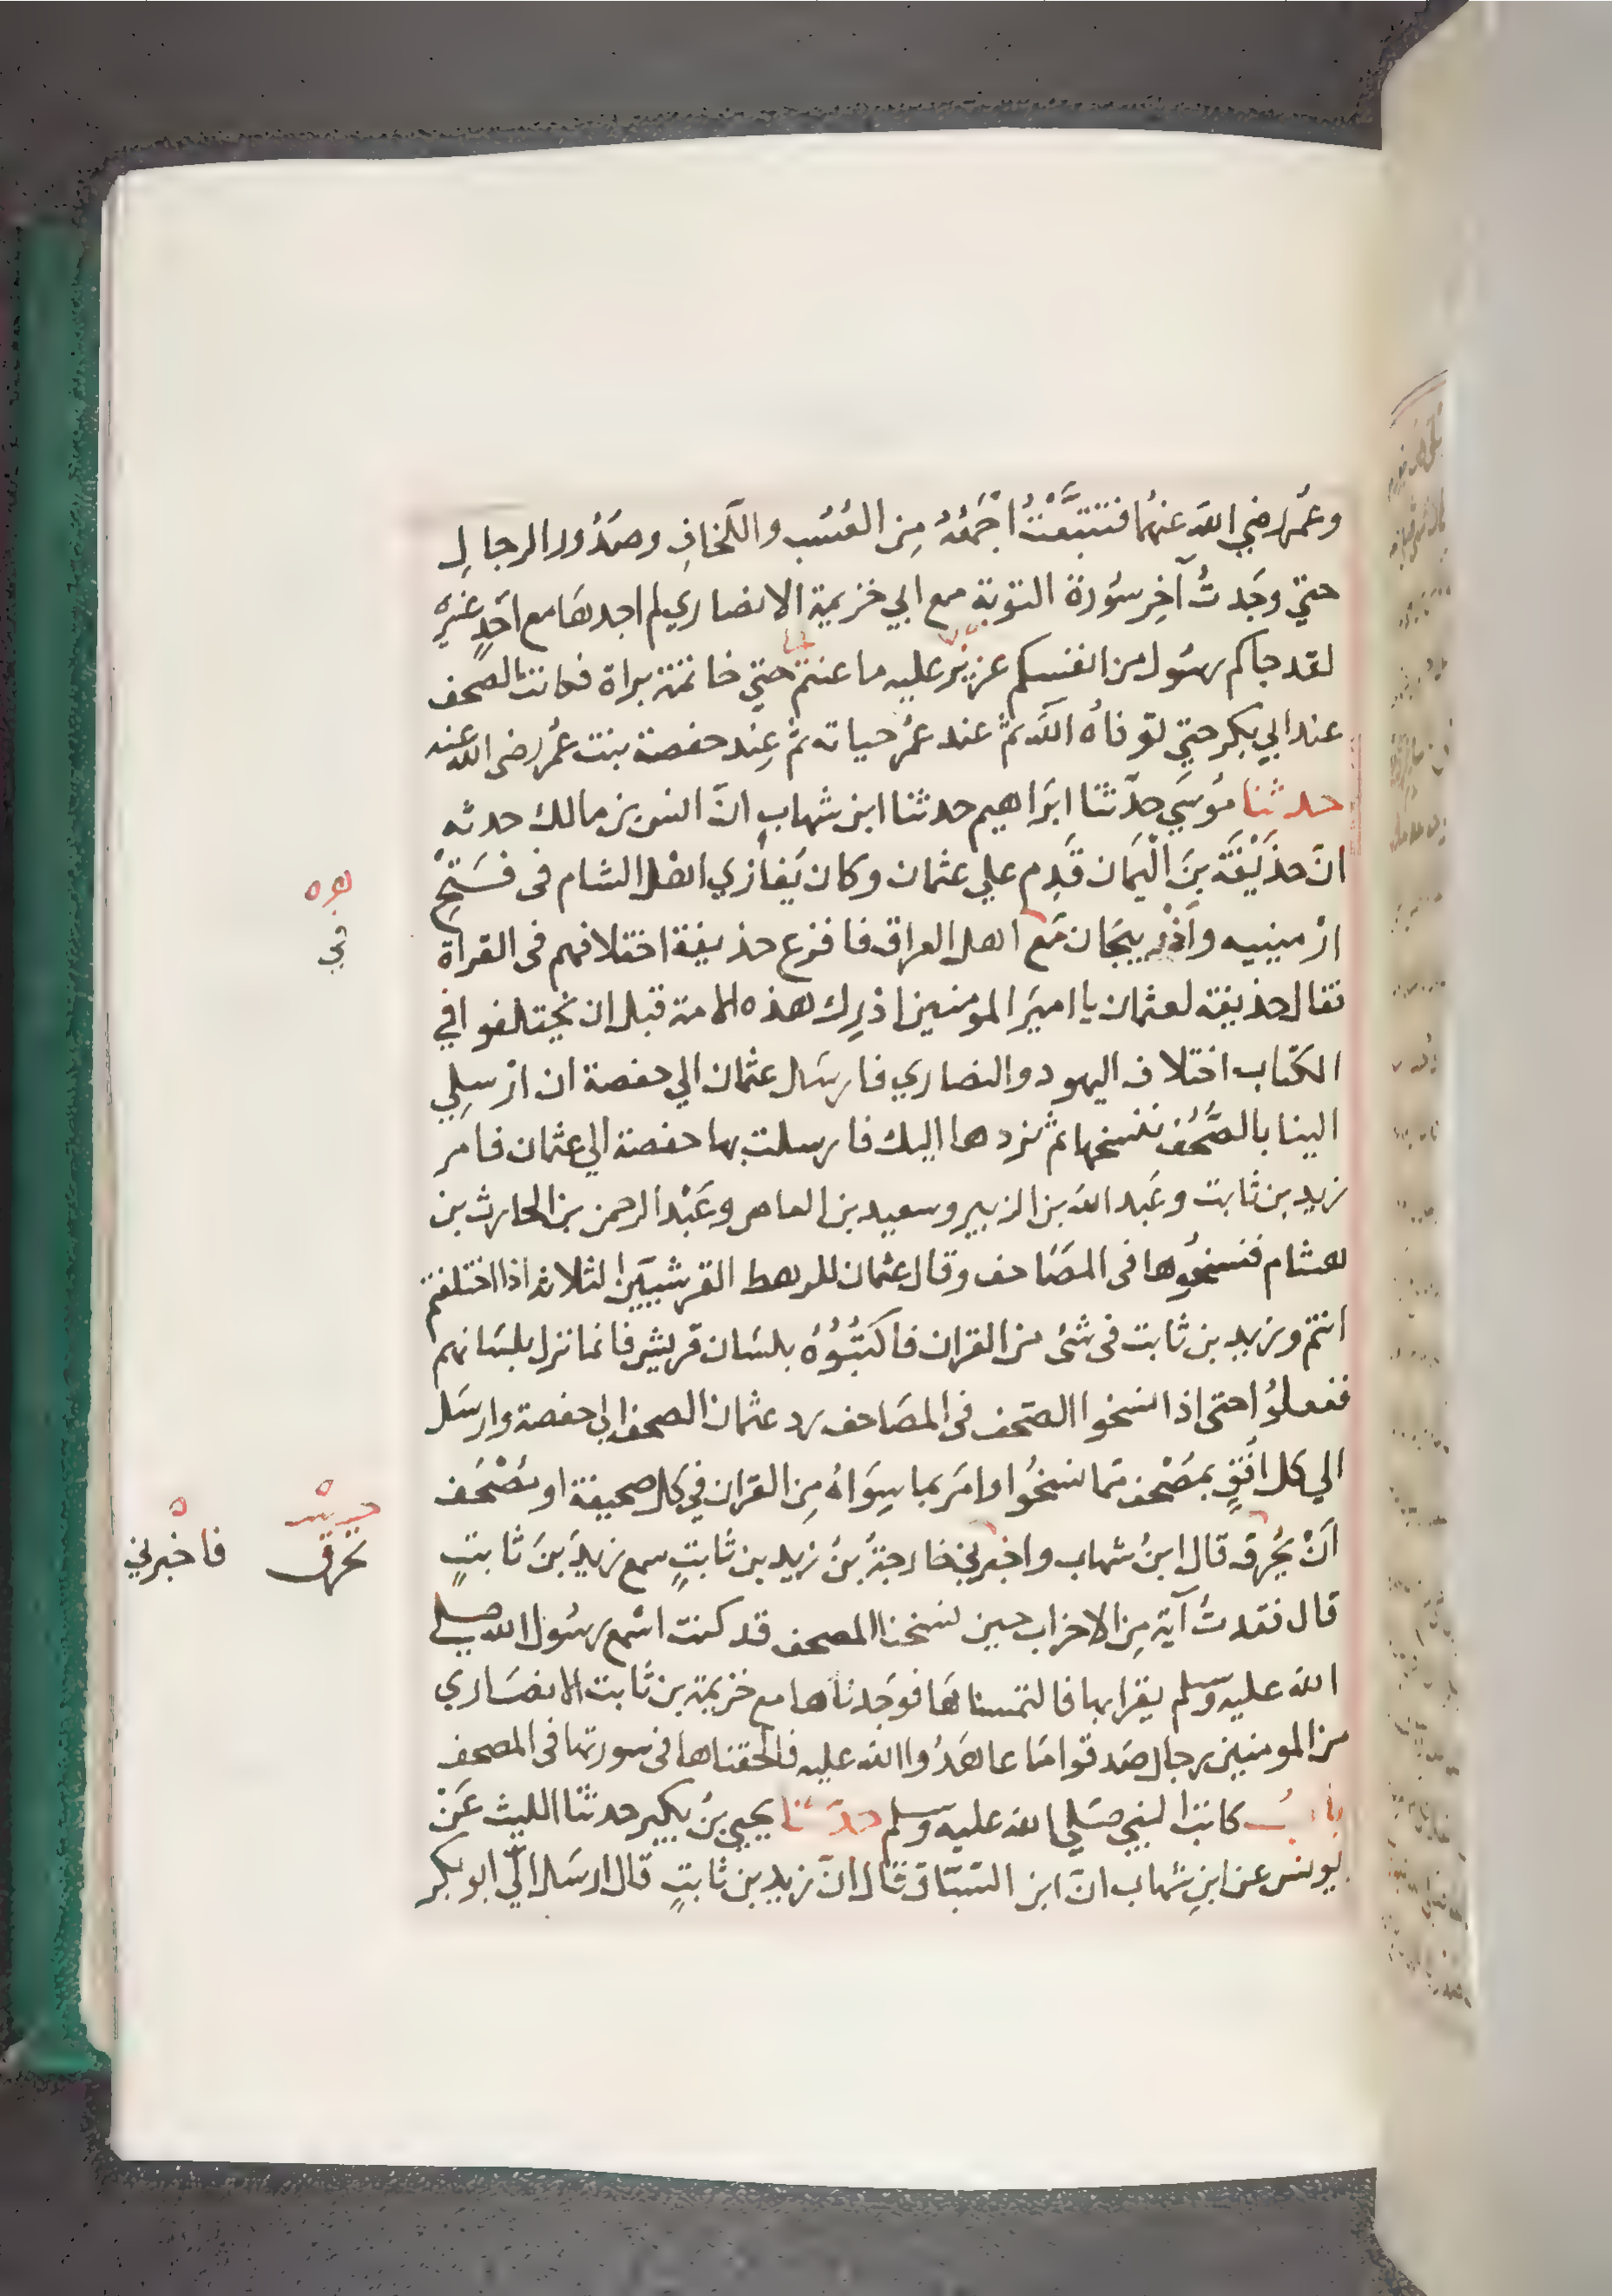 وعُمر رضي الله عنهُما فتتبَّعْتُ اجْمَعُهُ مِن العُسُب واللّخافِ وصُدُور الرجالِ
حتي وجَدتُ آخِر سُورة التوبة مع ابي خزيمة الانصاري لم اجدهَا مع احَدٍ غيره
لقد جاكم رسُول من انفسكم عزيز عليه ما عنتم حتي خاتمة براة فكانت الصحف
عند ابي بكر حتي توفاهُ اللّه ثم عند عمر حياته ثم عِند حفصة بنت عُمر رضي الله عنه
حدثنا مُوسَي حدّثنا ابرَاهيم حدثنا ابن شهابٍ انّ انس بن مالك حدثه
انّ حذَيْفَة بنَ الْيَمان قَدِم علي عثمان وكان يُغازي اهْل الشام فى فَتحِ
ارْمينيه واَذْربيجَان مَع اهل العراق فافزع حذيفة اختلافهم فى القراة
فقال حذيفة لعثمان يا اميرَ المومنين ادرِك هذه الامة قبل ان يختلفوا في
الكتاب اختلاف اليهود والنصاري فارسَل عثمان الي حفصة ان ارْسِلِي
الينا بالصُّحُف ننسخها ثم نردها اليك فارسلت بها حفصة الي عثمان فامر
زيد بن ثابت وعَبد الله بن الزبير وسعيد بن العاص وعَبْد الرحمن بن الحارث بن
هشام فنسخُوها فى المصَاحف وقال عثمان للرهط القرشيّينَ الثلاثة اذا اختلفتم
انتم وزيد بن ثابت فى شئ من القران فاكتُبُوُهُ بلسَان قريش فانما نزل بلسَانهم
ففعلوُا حتى اذا نسخوا الصّحف فى المصَاحف رد عثمان الصحف الى حفصة وارسَل
الي كل افُقٍ بمصْحف ممّا نسخُوا وامَر بما سِوَاهُ مِن القران في كل صحيفة او مصْحَف
اَنْ يُحْرق قال ابنُ شهاب واخبرني خارجةُ بنُ زيد بن ثابتٍ سمع زيدَ بنَ ثابتٍ
قال فقدتُ آية مِن الاحزاب حين نسخنا المصحف قد كنت اسْمع رسُول الله صلي
الله عليه وسلم يقرا بها فالتمسناهَا فوَجَدناها مع خزيمة بن ثابت الانصَاري
من المومنين رجال صَدقوا مَا عاهَدُوا الله عليه فالحقناها فى سورتها فى المصحف
بابُ كاتب النبي صَلي الله عليه وسلم حدّثنا يحيي بنُ بكير حدثنا الليث عَنْ
يونس عن ابنِ شهاب انّ ابن السّبّاق قال انّ زيد بن ثابتٍ قال ارسَل اليّ ابو بكر
في
تحرق
فاخبرني